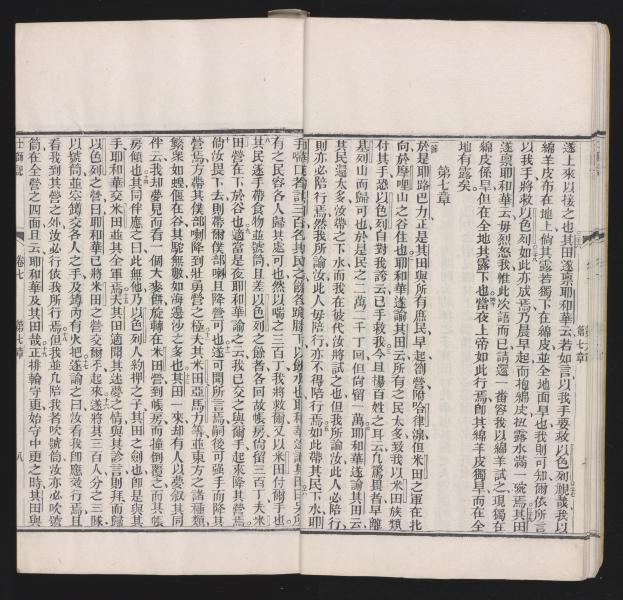 遂上來以接之也其田遂禀耶和華云若如言以我手要救以色列視哉我以
綿羊皮布在地上倘其露若獨下在綿皮並全地面旱也我則可知爾依所言
以我手將救以色列如此亦成焉乃晨早起而抱綿皮扭露水滿一碗焉其田
遂禀耶和華云毋烈怒我惟此次語而已請選一番容我以綿羊試之現獨在
綿皮係旱但在全地其露下也當夜上帝如此行焉即其綿羊皮獨旱而在全
地有露矣
第七章
於是耶路巴力正是其田與所有庶民早起劄營附哈律湶但米田之軍在北
向於摩哩山之谷住也耶和華遂諭其田云所有之民太多致我以米田族類
付其手恐以色列自對我誇云已手救我今且揚百姓之耳云凡驚畏者早離
基列山而歸可也於是民之二萬二千丁回但尚留一萬耶和華遂諭其田云
其民還太多汝帶之下水而我在彼代汝將試之也但我所諭汝此人必陪行
則亦必陪行焉然我所諭汝此人毋陪行亦不得陪行焉如此帶其民下水耶
有之民容各人歸其處可也然以啗之三百丁我將救爾又以米田付爾手也
其民遂手帶食物並號筒且差以色列之餘者各回故帳房尚留三百丁夫米
田營在下於谷也遂當是夜耶和華諭之云我已交之與爾手起來降其營焉
倘汝畏下去則帶爾僕部喇且降營可也遂可聞所言焉嗣後可强手而降其
營焉方帶其僕部喇降到壯勇營之極夫其米田亞馬力等並東方之諸種類
繁衆如蝗偃在谷其駝無數如海邊沙之多也其田一來却有人以夢敘其同
伴云我却夢見而看一個大麥餅旋轉在米田營到帳房而撞倒覆之而其帳
房傾也其同伴應之曰此無他乃以色列人約押之子其田之劍也卽是與其
手耶和華交米田並其全軍焉夫其田適聞其述夢之情與其診言則拜而歸
以色列之營曰耶和華已將米田之營交爾手起來遂將其三百人分之三隊
以號筒並空罇交各人之手及罇內有火把遂諭之曰汝看我卽應效行焉且
看我到其營之外汝必行依我所行焉但我並凡偕我者吹號筒汝亦必吹號
筒在全營之四面且云耶和華及其田哉正排輪守更始守中更之時其田與
士師記
卷七
第七章
八